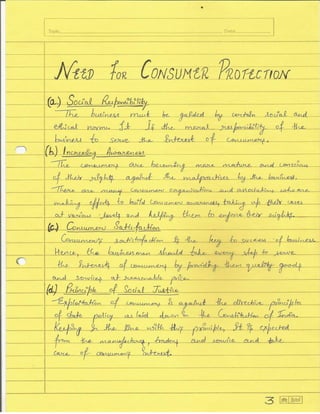 Topic
Date
NEED FOR CONSUMER PROTECTION
(a.) Social Responsibility
The business must be guided by certain social and
ethical norms. It Is the moral responsibility of the
business to serve the Interest of consumers.
(b.) Increasing Awareness
The consumers are becoming more mature and conscious
of their rights against the malpractices by the business.
There are many consumer organisations and associations who are
making efforts to build consumer awareness, taking up their cases
at various levels and helping them to enforce their rights.
(c.) Consumer Satisfaction
Consumers satisfaction Is the key to success of business.
Hence, the businessmen should take every step to serve
the Interests of consumers by providing them quality goods
and services at reasonable price.
(d.) Principle of Social Justice
Exploitation of consumers is against the directive principles
of state policy as laid down in the Constitution of India.
Keeping In the line with this principle, It Is expected
from the manufacturers, traders and service and take
care of consumers interest.
3